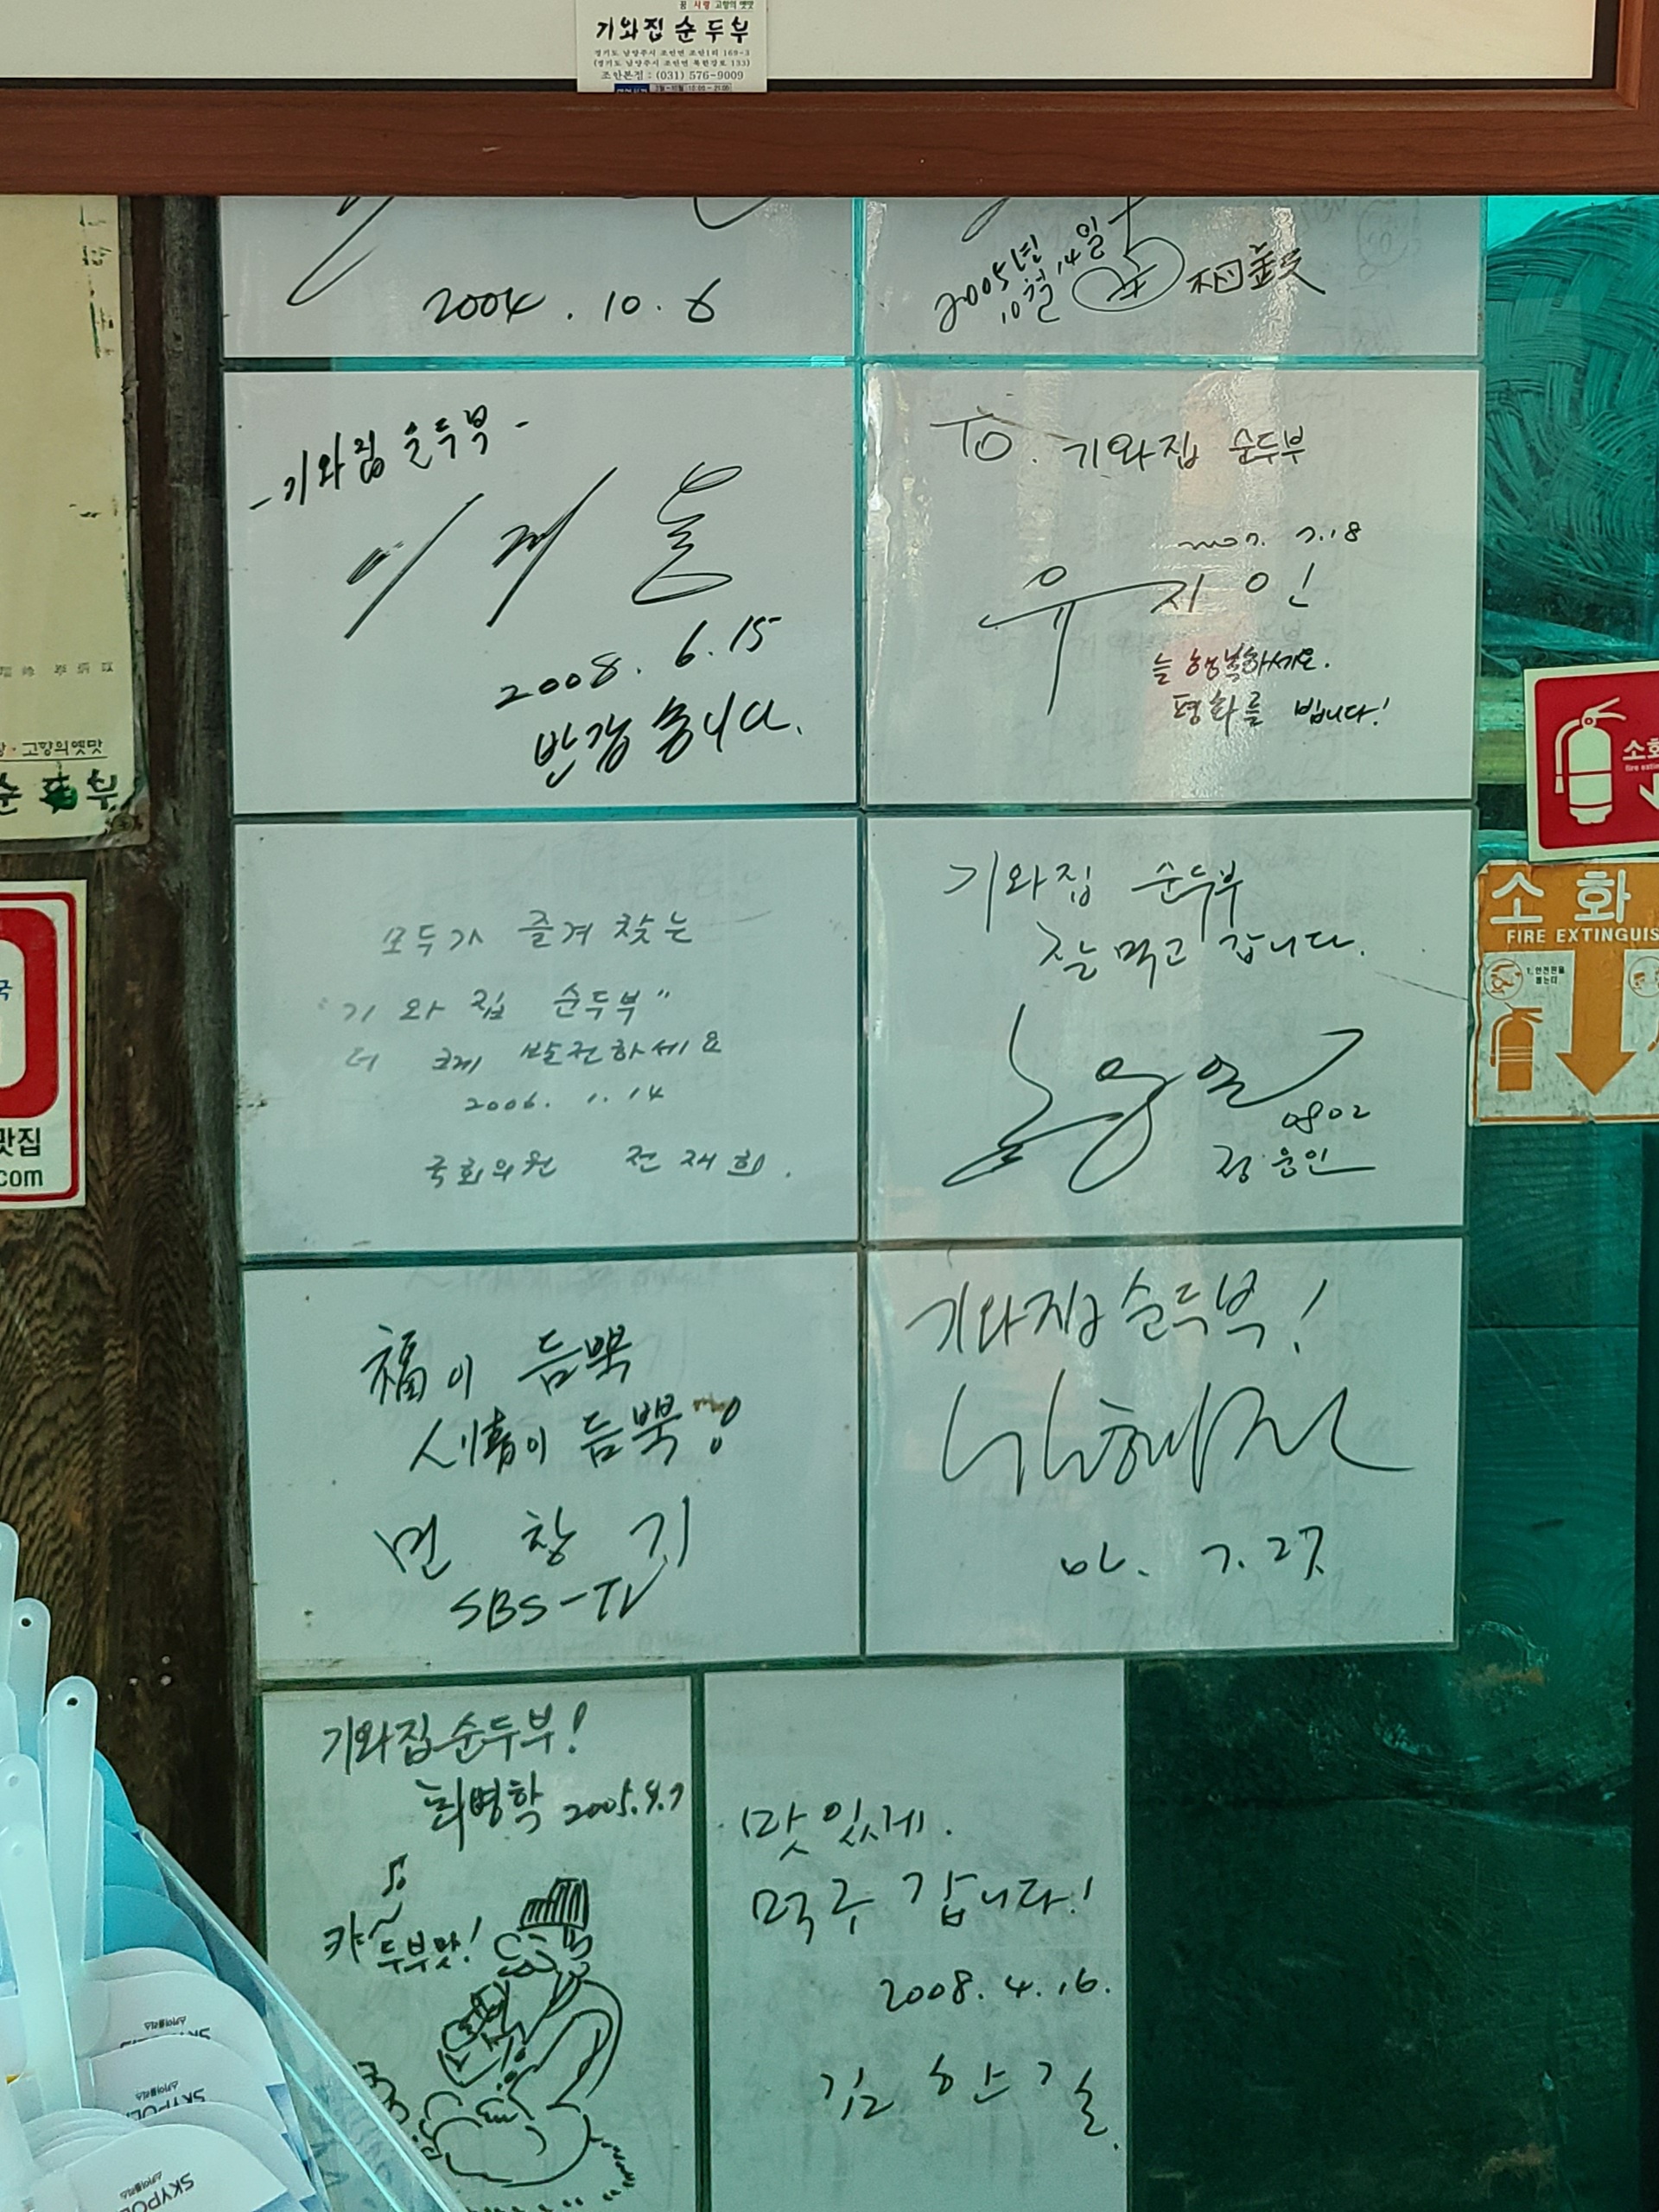 꿈 사랑 고향의 옛맛
기와집 순두부
경기도 남양주시 조안면 조안1리 169-3
(경기도 남양주시 조안면 북한강로 133)
조안본점 : (031) 576-9009
2004. 10. 6
2005년
10월 14일
-기와집 순두부-
이재룡
2008. 6. 15
반갑습니다.
To. 기와집 순두부
2007. 7.18
유지인
늘 행복하세요.
평화를 빕니다!
모두가 즐겨 찾는
"기와집 순두부"
더 크게 발전하세요
2006. 1. 14
국회의원 전재희.
기와집 순두부
잘 먹고 갑니다.
0802
정웅인
福이 듬뿍
人情이 듬뿍!
맹창기
SBS-TV
기와집 순두부!
7. 27
기와집 순두부!
최병학 2005.4.7
캬~ 두부맛!
맛있게.
먹구 갑니다!
2008. 4. 16.
김한길
고향의옛맛
순두부
맛집
.com
소화
FIRE EXTINGUIS
SKYPOL
SKYPO